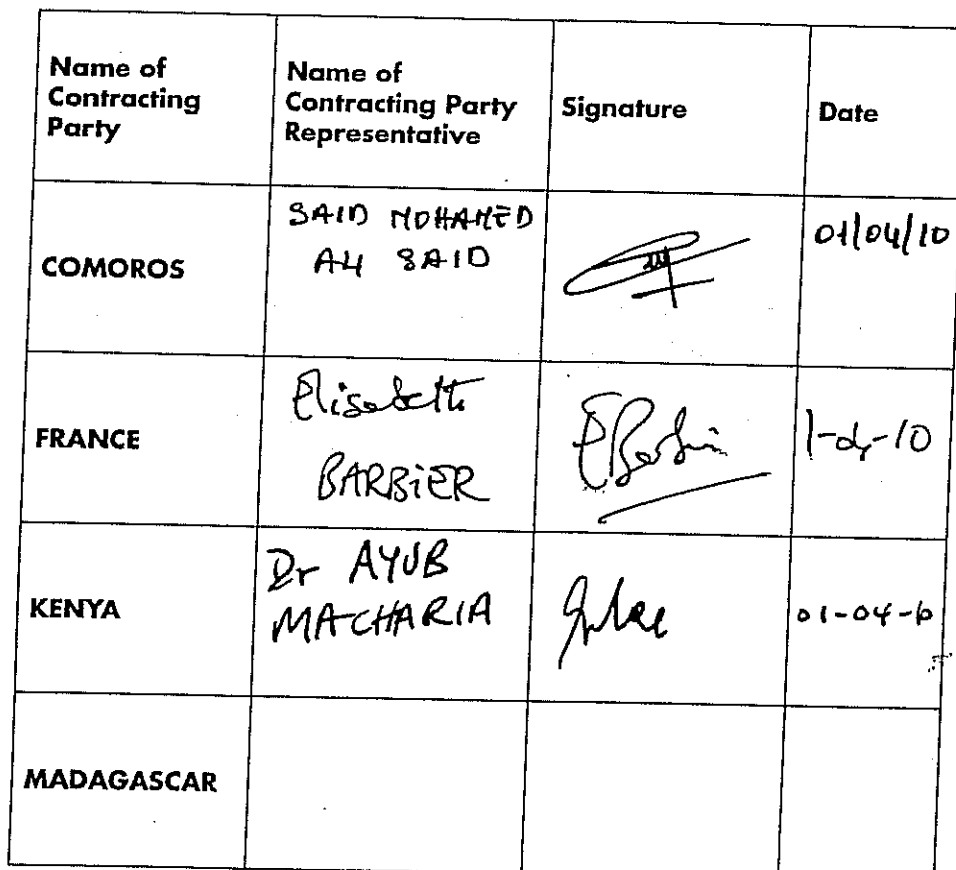 Name of
Contracting
Party
Name of
Contracting Party
Representative
Signature
Date
COMOROS
SAID MOHAMED
ALI SAID
01/04/10
FRANCE
Elisabeth
BARBIER
EBarbier
1-04-10
KENYA
Dr AYUB
MACHARIA
01-04-10
MADAGASCAR